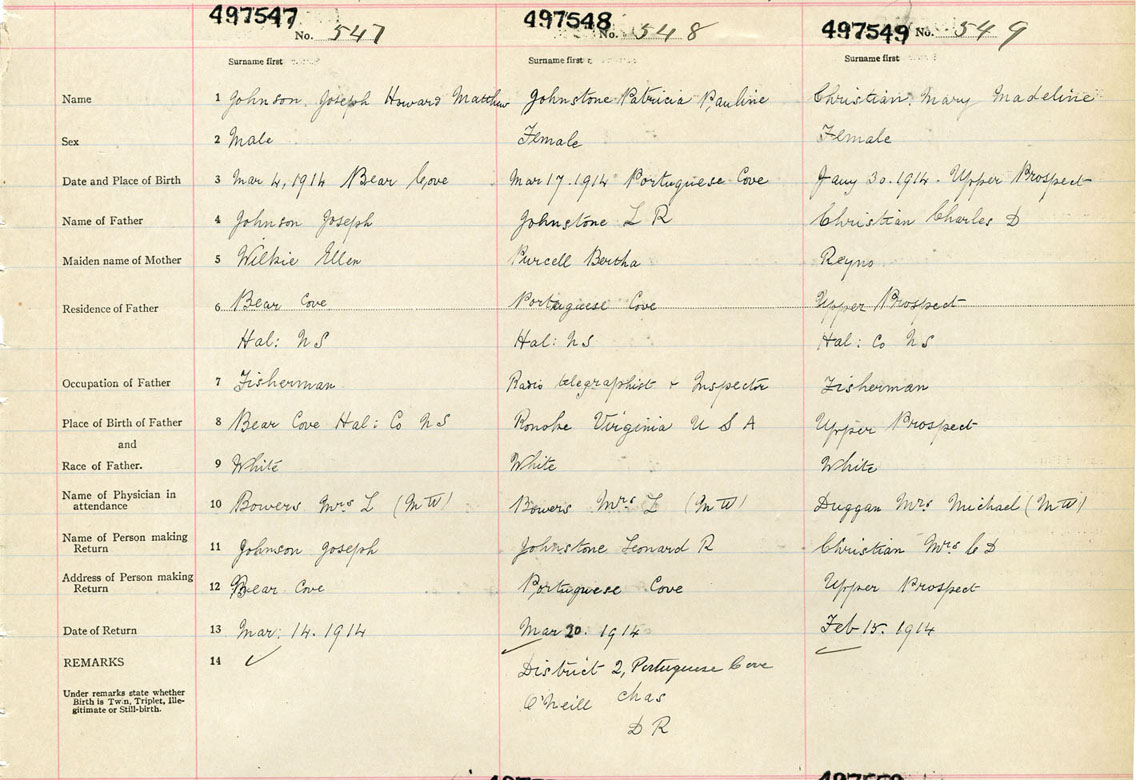 497547 No. 547 497548 No. 548 497549 No. 549
Surname first Surname first Surname first
Name 1 Johnson, Joseph Howard Matthew Johnstone Patricia Pauline Christian, Mary Madeline
Sex 2 Male Female Female
Date and Place of Birth 3 Mar 4, 1914 Bear Cove Mar 17. 1914 Portuguese Cove Jany 30. 1914. Upper Prospect
Name of Father 4 Johnson Joseph Johnstone L R Christian Charles D
Maiden name of Mother 5 Wilkie Ellen Purcell Bertha Reyno
Residence of Father 6 Bear Cove Portuguese Cove Upper Prospect
Hal: N S Hal: N S Hal: Co N S
Occupation of Father 7 Fisherman Radio telegraphist + Inspector Fisherman
Place of Birth of Father 8 Bear Cove Hal: Co N S Ronoke Virginia U S A Upper Prospect
and
Race of Father. 9 White White White
Name of Physician in
attendance 10 Bowers Mrs L (M W) Bowers Mrs L (M W) Duggan Mrs Michael (M W)
Name of Person making
Return 11 Johnson Joseph Johnstone Leonard R Christian Mrs C D
Address of Person making
Return 12 Bear Cove Portuguese Cove Upper Prospect
Date of Return 13 Mar: 14. 1914 Mar 20. 1914 Feb 15. 1914
REMARKS 14 ✓ District 2, Portuguese Cove
Under remarks state whether
Birth is Twin, Triplet, Ille-
gitimate or Still-birth.
O'Neill Chas
D R